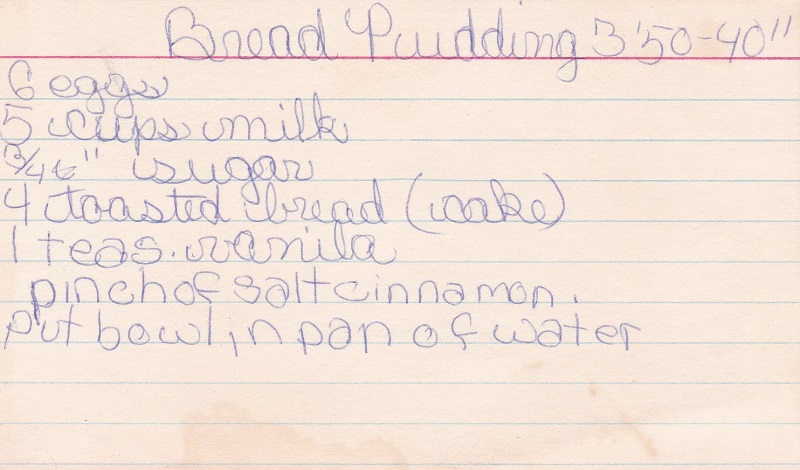 Bread Pudding 3'50-40"
6 eggs
5 cups milk
3/4 c " sugar
4 toasted bread (cake)
1 teas. vanila
pinch of salt cinnamon.
Put bowl in pan of water